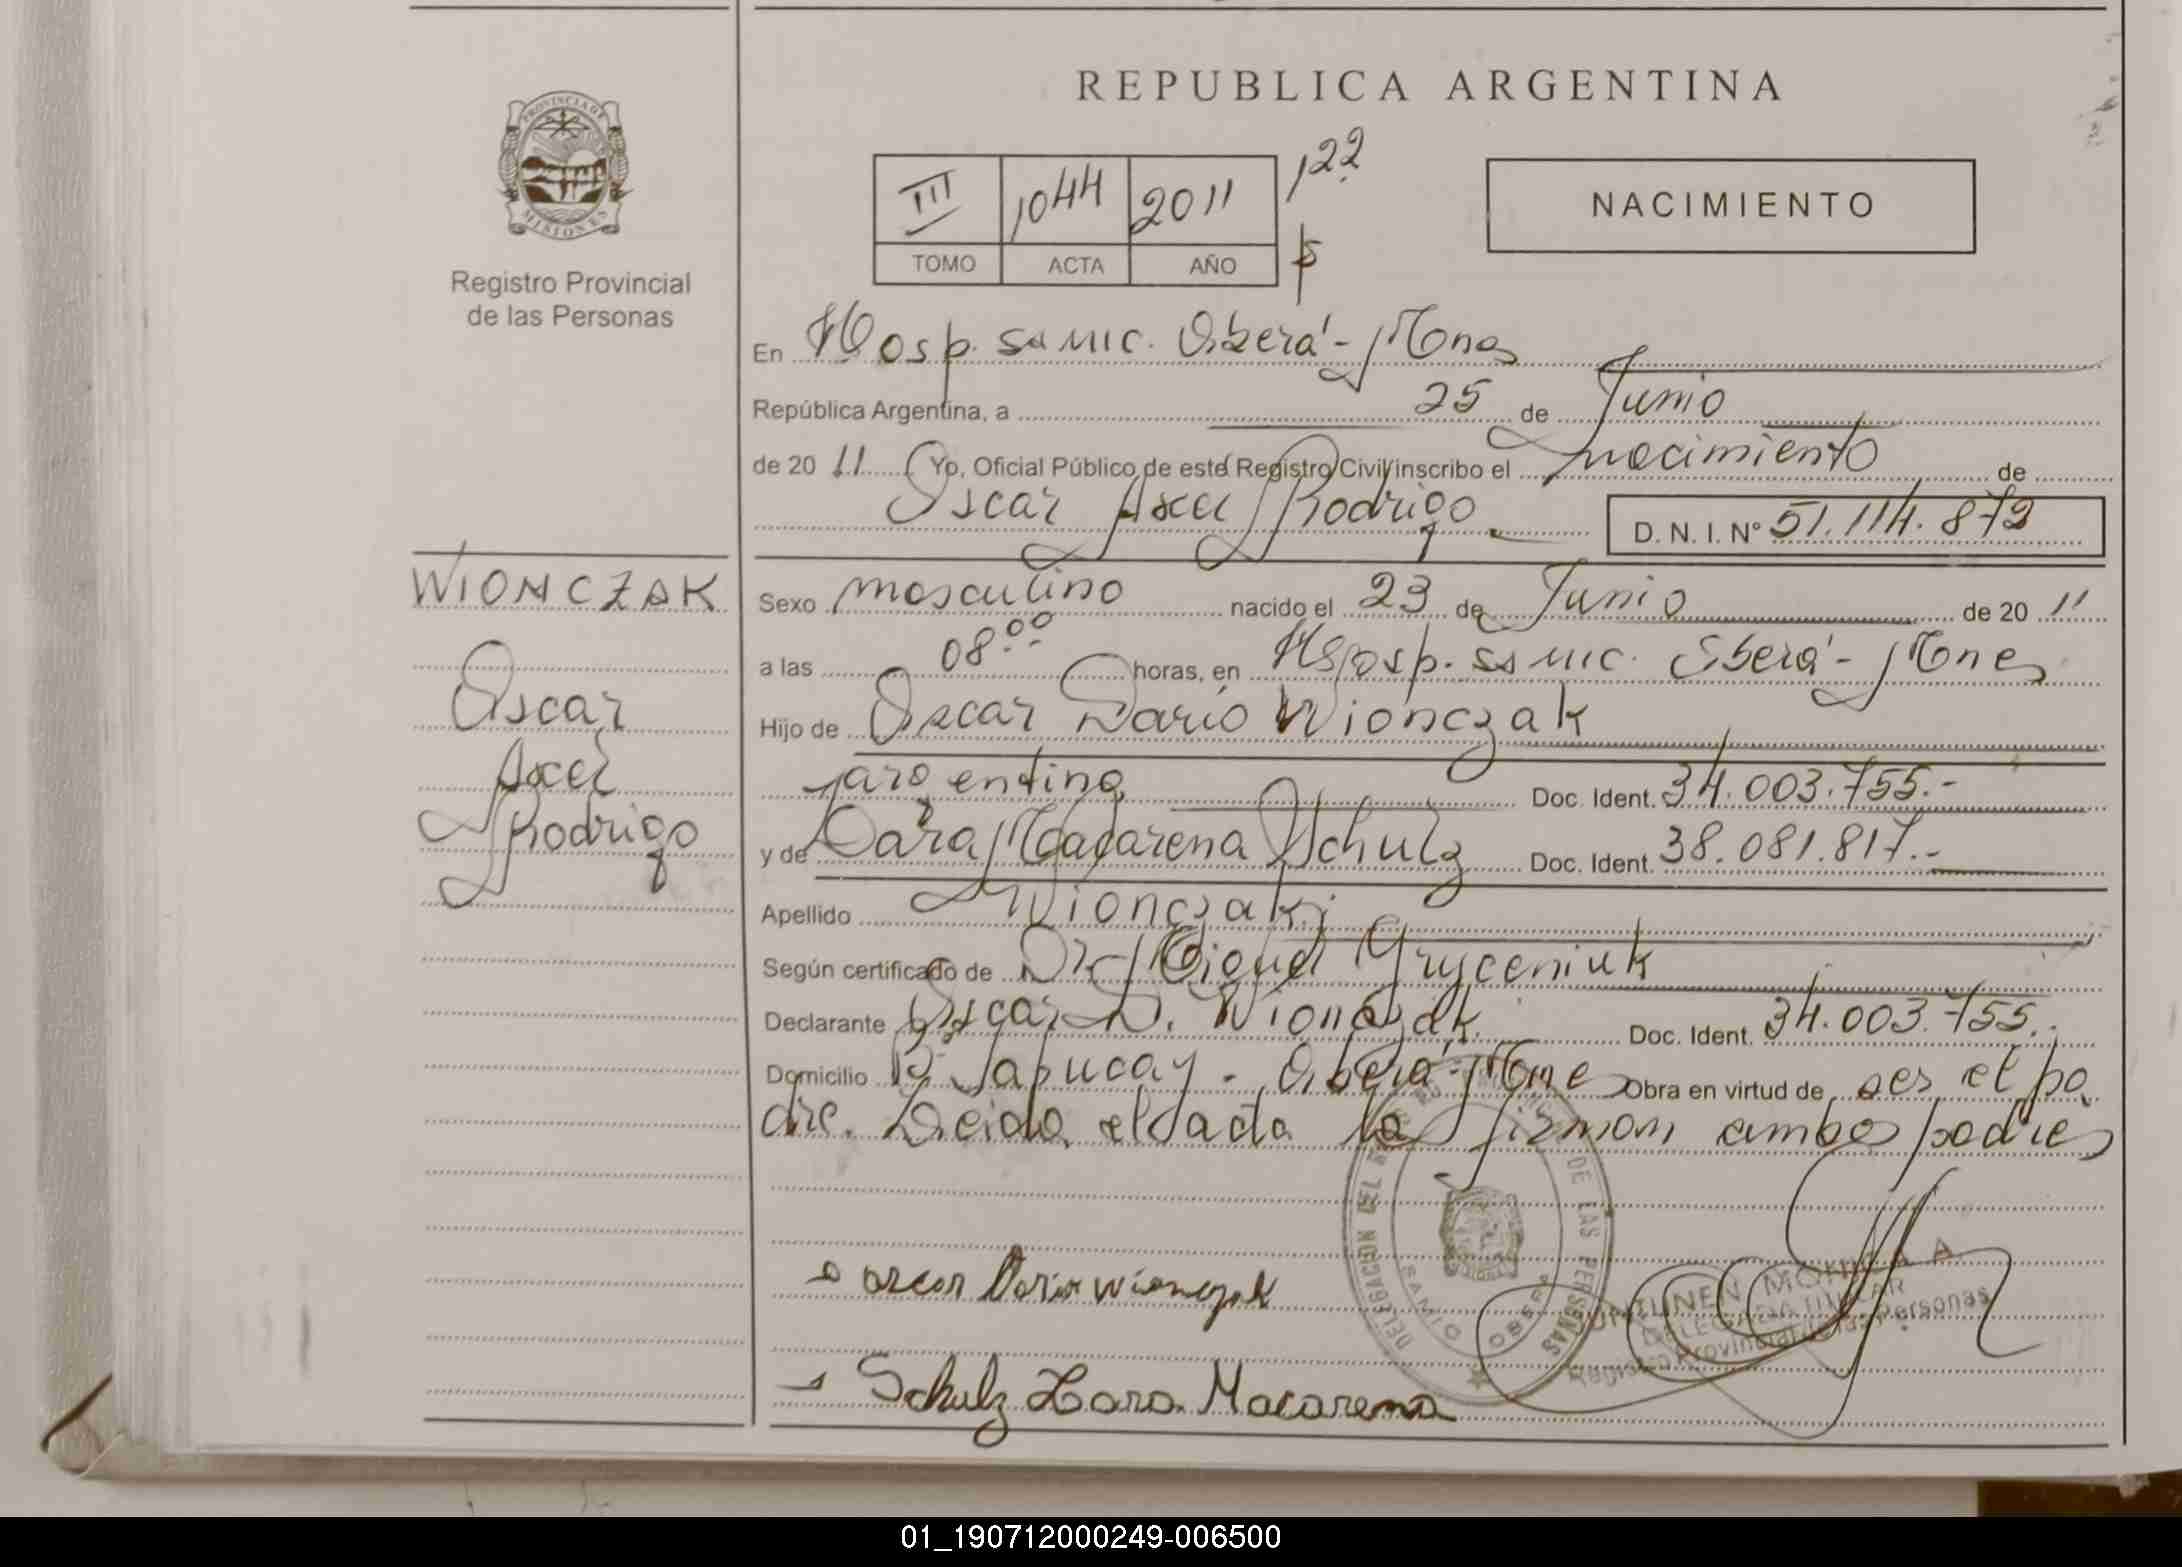 REPUBLICA ARGENTINA
PROVINCIA DE
MISIONES
Registro Provincial
de las Personas
III 1044 2011 122
TOMO ACTA AÑO
NACIMIENTO
En Hosp. Samic. Oberá - Mnes
República Argentina, a 25 de Junio
de 20 11 Yo, Oficial Público de este Registro Civil inscribo el nacimiento de
Oscar Axel Rodrigo D. N. I. Nº 51.114.872
WIONCZAK
Oscar
Axel
Rodrigo
Sexo masculino nacido el 23 de Junio de 20 11
a las 08:00 horas, en Hosp. Samic. Oberá - Mnes
Hijo de Oscar Darío Wionczak
argentino Doc. Ident. 34.003.755.-
y de Lara Macarena Schulz Doc. Ident. 38.081.817.-
Apellido Wionczak
Según certificado de Dr. Miguel Gryceniuk
Declarante Oscar D. Wionczak Doc. Ident. 34.003.755.-
Domicilio Bº Sapucay - Oberá - Mnes Obra en virtud de ser el pa
dre. Leída el acta la firman ambos padres
Oscar Dario Wionczak
Schulz Lara Macarena
DE LAS PERSONAS
SAMIC OBERA
MONICA A.
DELEGADA TITULAR
Registro Provincial de las Personas
01_190712000249-006500